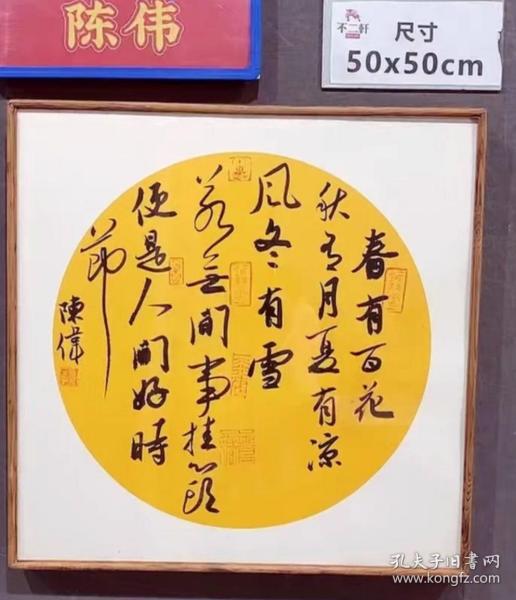 陈伟
不二軒
尺寸
50x50cm
春有百花
秋有月夏有凉
風冬有雪
若無閒事挂心頭
便是人間好時
節
陳偉
孔夫子旧书网
www.kongfz.com